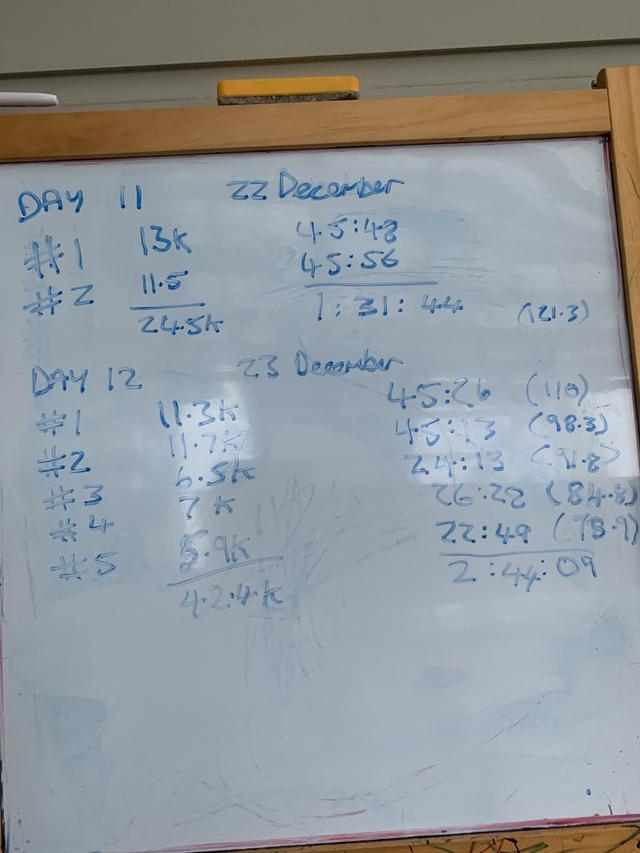 DAY 11 22 December
#1 13k 45:48
#2 11.5 45:56
24.5k 1:31:44 (121.3)
DAY 12 23 December
#1 11.3k 45:26 (110)
#2 11.7k 45:13 (98.3)
#3 6.5k 24:13 (91.8)
#4 7k 26:28 (84.8)
#5 5.9k 22:49 (78.9)
42.4k 2:44:09